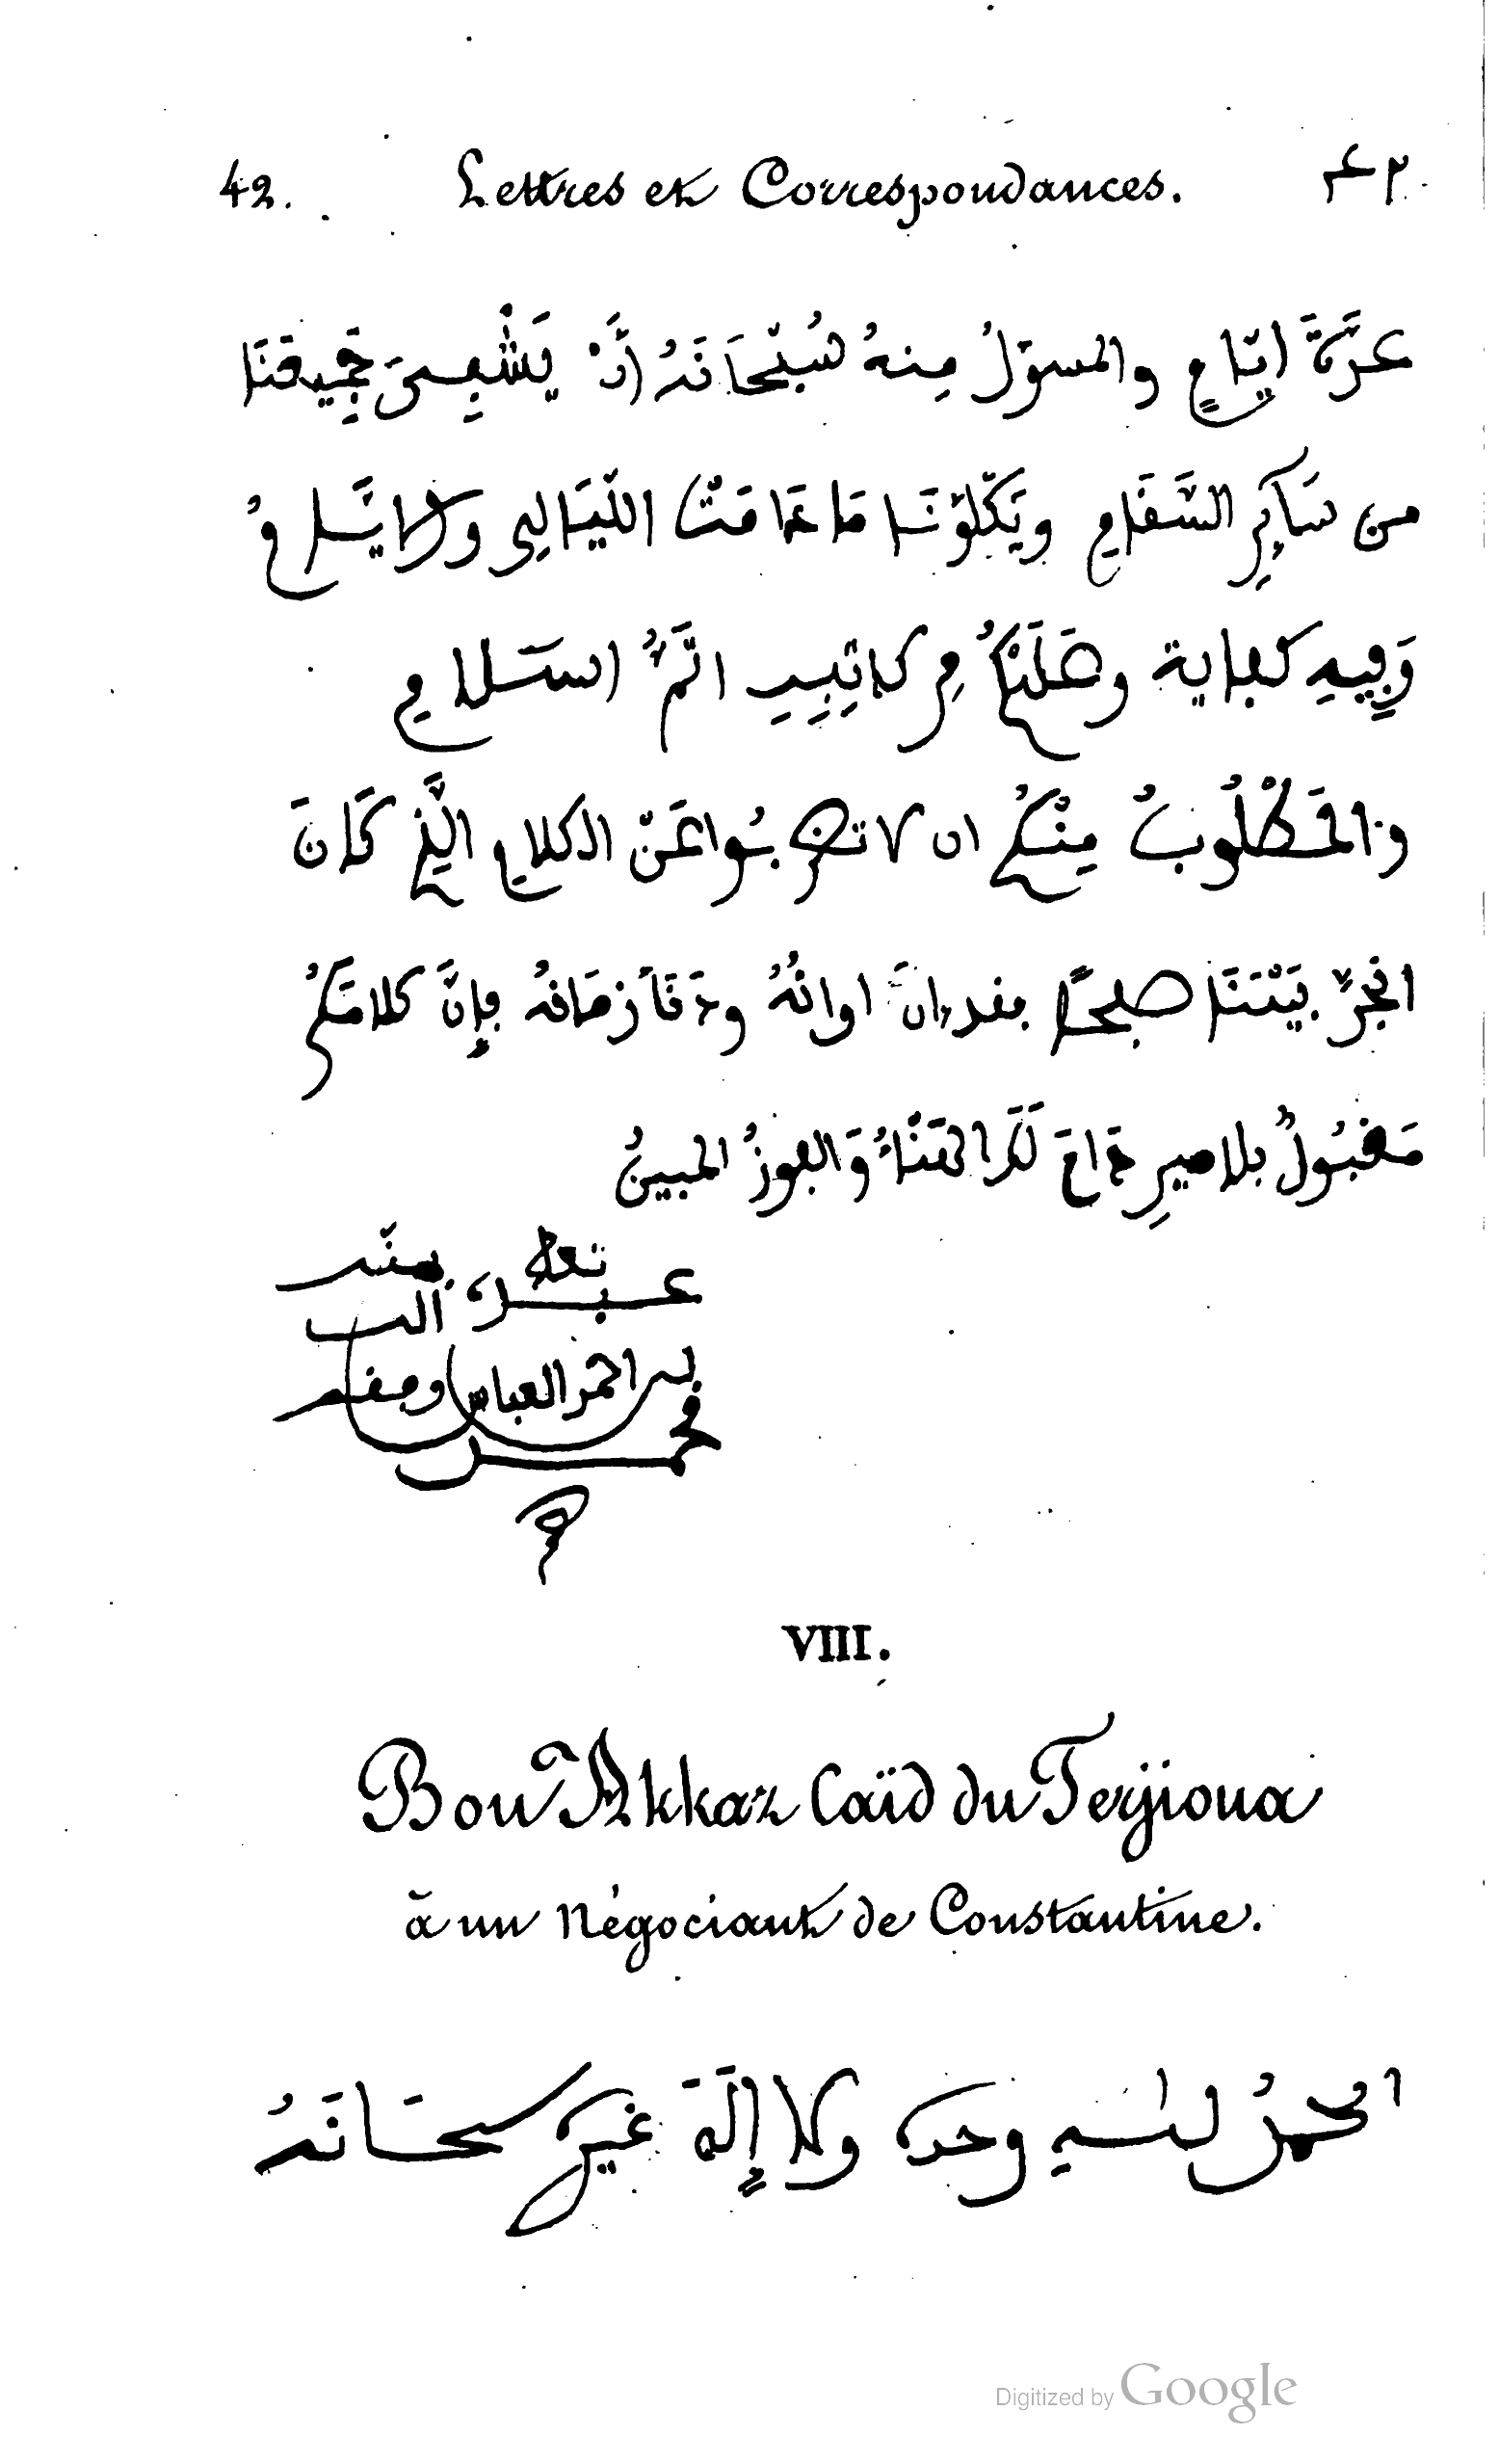 42. Lettres et Correspondances. ٤٢
عِدَّةَ ايّامٍ والمسؤلُ مِنهُ سُبْحَانَهُ أنْ يَشْفِىَ جَمِيعَنَا
من سَائِرِ السَّقَامِ ويَكْلَؤنَا مَا دَامَتْ اللّيَالِى والايَّامُ
وَفِيهِ كفاية وعَلَيْكُم مِن كَاتِبِهِ اتَمُّ السّلامِ
وَالمَطْلُوبُ مِنْكُم ان لا تضربُوا عَنْ الكلامِ الَّذِي كَانَ
بَيْنَنَا صلحًا فقد انَ اوانُهُ ودَنَا زمَانهُ فإنَّ كلامَكُم
مَقبُولٌ بلامير دَامَ لكم الهَنَاءُ وَالفوزُ المبينُ
عبده
بن احمد العباس
محمد
VIII.
Bou Akkaz Caïd du Ferjioua
à un négociant de Constantine.
الحمدُ لله وحده ولا إلَهَ غيره سبحَانَهُ
Digitized by Google